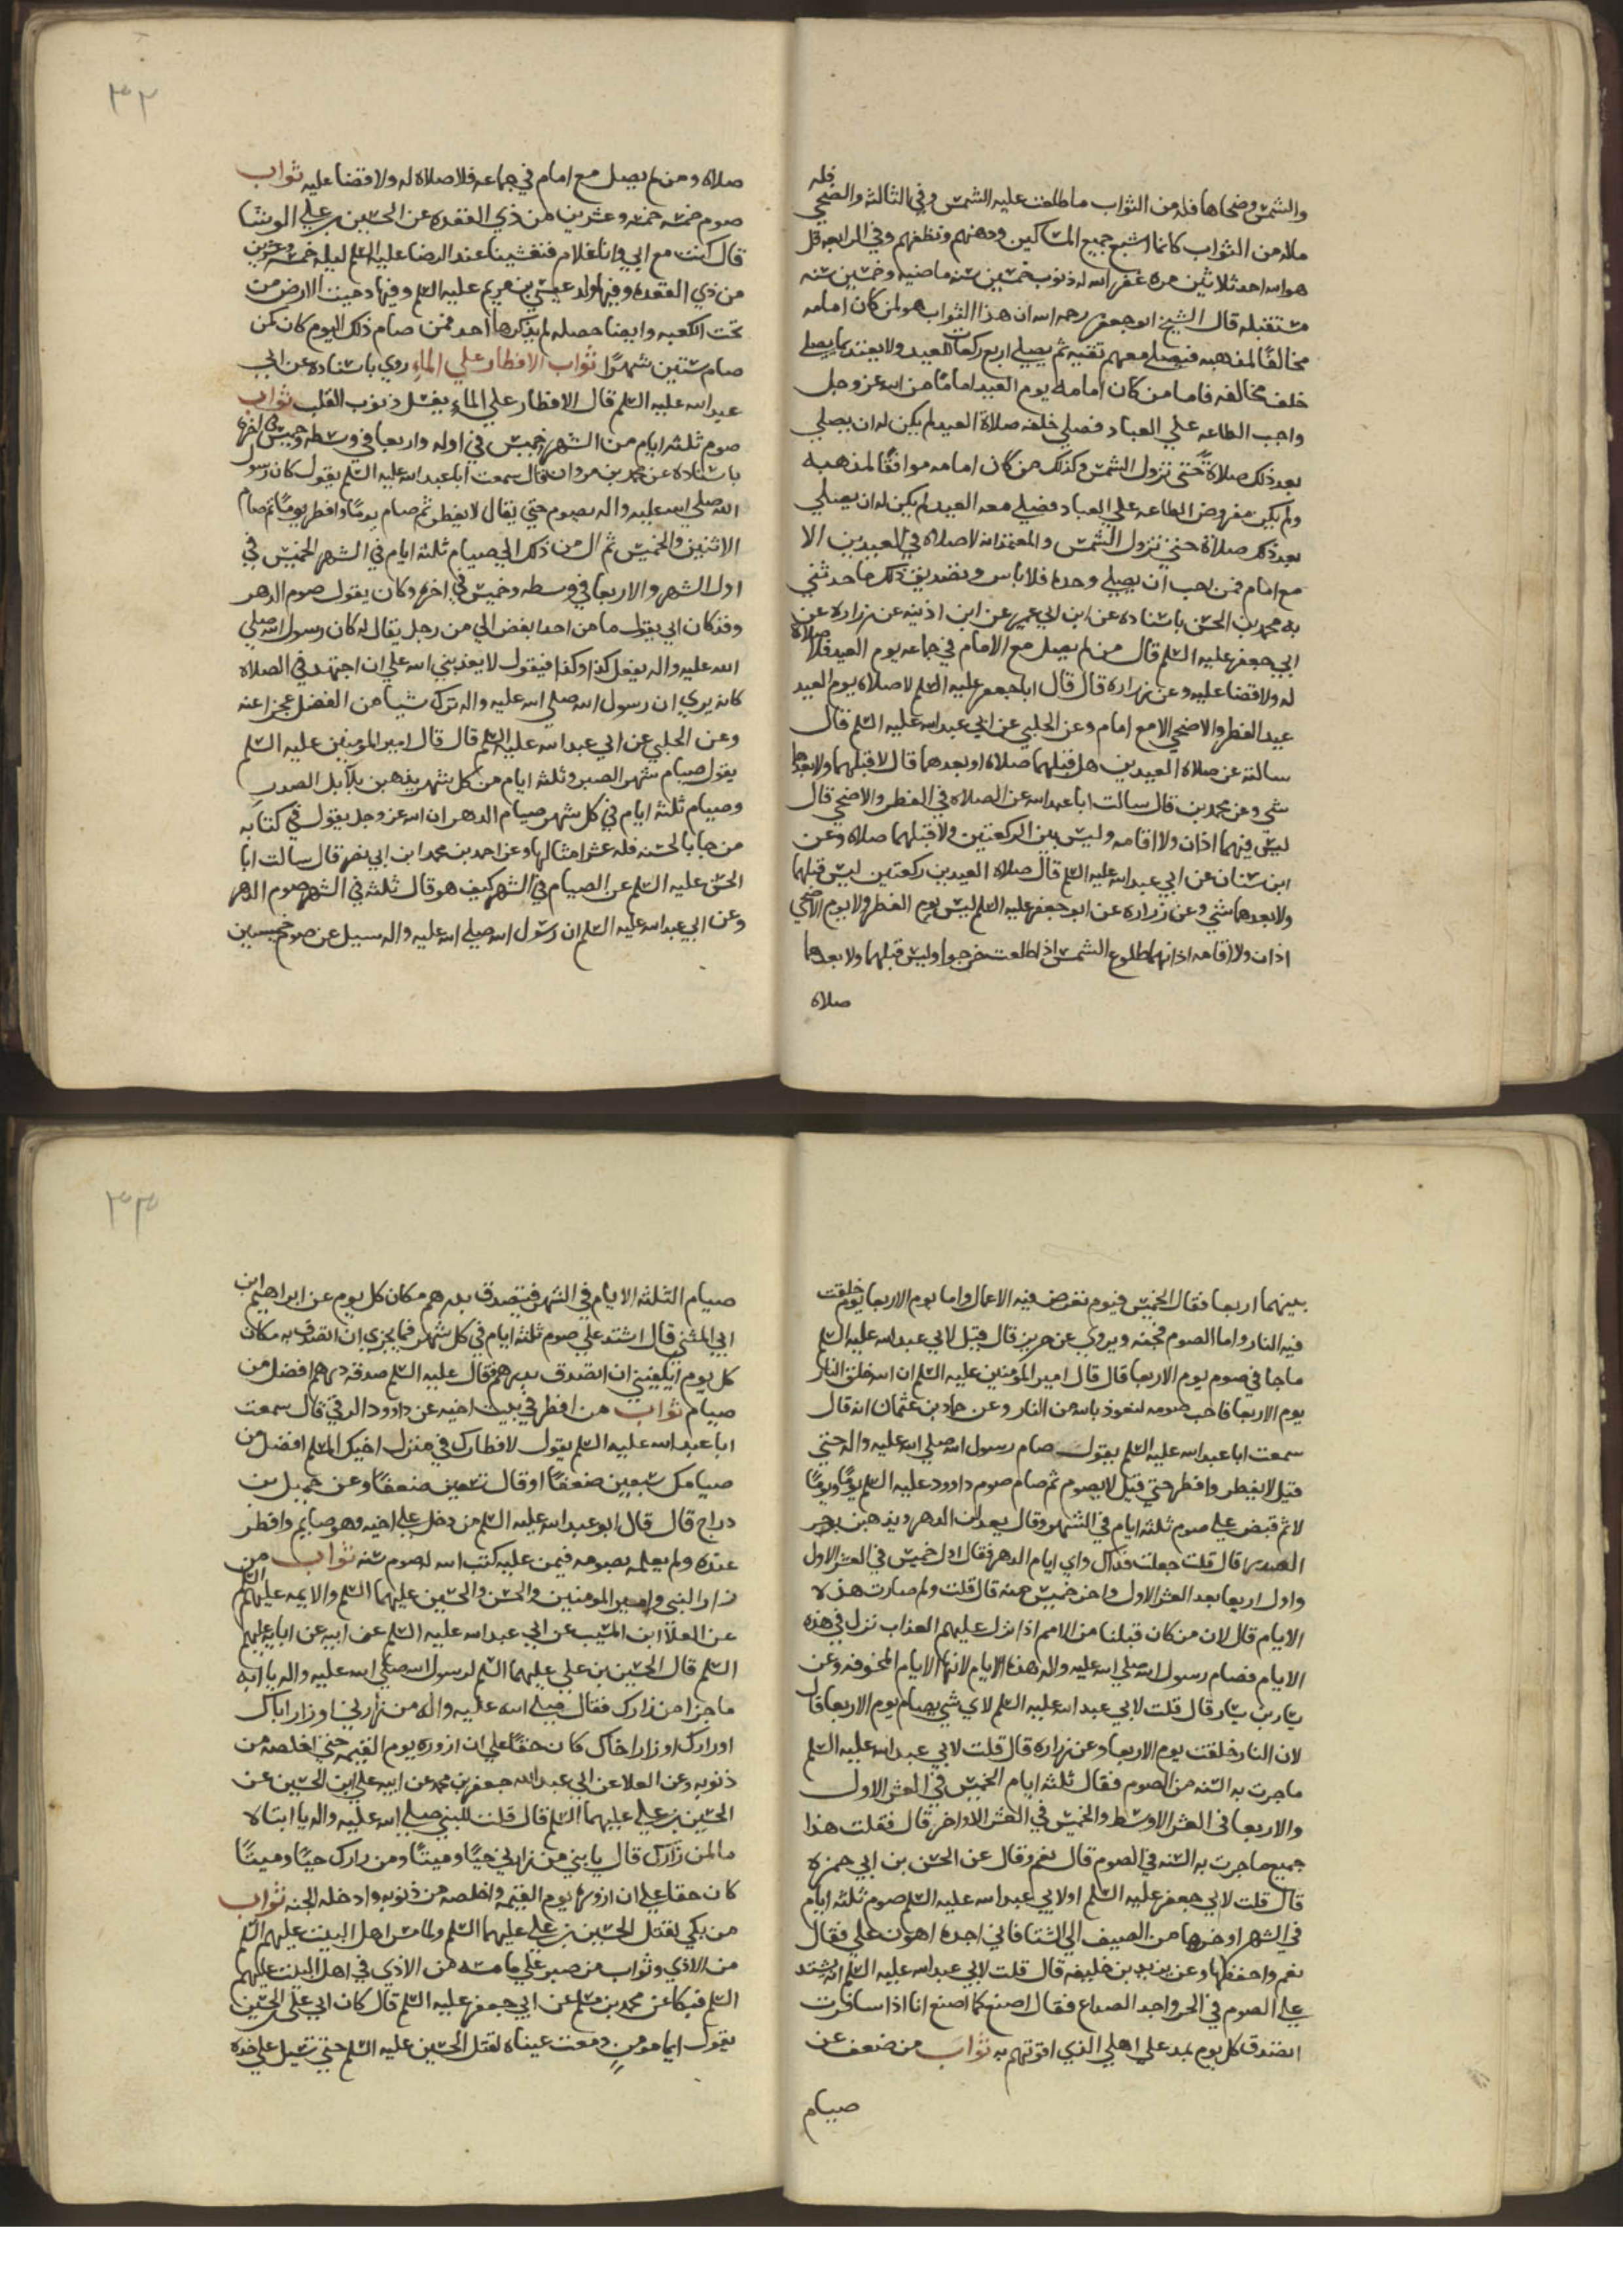 فله
والشمس وضحاها فله من الثواب ما طلعت عليه الشمس وفي الثالثه والضحي
فله من الثواب كانما اشبع جميع المساكين ودهنهم ونظفهم وفي الرابعه قل
هو الله احد ثلاثين مره غفر الله له ذنوب خمسين سنه ماضيه وخمسين سنه
مستقبله قال الشيخ ابو جعفر رحمه الله ان هذا الثواب هو لمن كان امامه
مخالفًا لمذهبه فيصلي معهم تقيه ثم يصلي اربع ركعات للعيد ولا يعتد بما يصلي
خلف مخالفه فاما من كان امامه يوم العيد امامًا من الله عز وجل
واجب الطاعه علي العباد فصلي خلفه صلاة العيد لم يكن له ان يصلي
بعد ذلك صلاة حتي تزول الشمس وكذلك من كان امامه موافقًا لمذهبه
ولم يكن مفروض الطاعه علي العباد فصلي معه العيد لم يكن له ان يصلي
بعد ذلك صلاة حتي تزول الشمس والمعتمد انه لا صلاه في العيدين الا
مع امام فمن احب ان يصلي وحده فلا باس وتصديق ذلك ما حدثني
به محمد بن الحسن باسناده عن ابن ابي عمير عن ابن اذينه عن زراره عن
ابي جعفر عليه السلم قال من لم يصل مع الامام في جماعه يوم العيد فلا صلاة
له ولا قضا عليه وعن زراره قال قال ابا جعفر عليه السلم لا صلاه يوم العيد
عيد الفطر والاضحي الا مع امام وعن الحلبي عن ابي عبد الله عليه السلم قال
سالته عن صلاه العيدين هل قبلهما صلاه او بعدهما قال لا قبلهما ولا بعدهما
شي وعن محمد بن قال سالت ابا عبد الله عن الصلاه في الفطر والاضحي قال
ليس فيهما اذان ولا اقامه وليس بين الركعتين ولا قبلهما صلاه وعن
ابن سنان عن ابي عبد الله عليه السلم قال صلاه العيدين ركعتين ليس قبلهما
ولا بعدهما شي وعن زراره عن ابو جعفر عليه السلم ليس يوم الفطر ولا يوم الاضحي
اذان ولا اقامه اذانهما طلوع الشمس اذا طلعت خرجوا وليس قبلهما ولا بعدهما
صلاه
٣٢
صلاه ومن لم يصل مع امام في جماعه فلا صلاه له ولا قضا عليه ثواب
صوم خمسه خمسه وعشرين من ذي القعده عن الحسين بن علي الوشا
قال كنت مع ابي وانا غلام فتعشينا عند الرضا عليه السلم ليله خمسه وعشرين
من ذي القعده وفيها ولد عيسي بن مريم عليه السلم وفيها دحيت الارض من
تحت الكعبه وايضا حصله لم يذكرها احد فمن صام ذلك اليوم كان كمن
صام ستين شهرًا ثواب الافطار علي الماء روي باسناده عن ابي
عبد الله عليه السلم قال الافطار علي الماء يغسل ذنوب القلب ثواب
صوم ثلثه ايام من الشهر خميس في اوله واربعا في وسطه وخميس في اخره
باسناده عن محمد بن مروان قال سمعت ابا عبد الله عليه السلم يقول كان رسول
الله صلي الله عليه واله يصوم حتي يقال لا يفطر ثم صام يومًا وافطر يومًا ثم صام
الاثنين والخميس ثم ال من ذلك الي صيام ثلثه ايام في الشهر الخميس في
اول الشهر والاربعا في وسطه وخميس في اخره وكان يقول صوم الدهر
وقد كان ابي يقول ما من احد ابغض الي من رجل يقال له كان رسول الله صلي
الله عليه واله يفعل كذا وكذا فيقول لا يعذبني الله علي ان اجتهد في الصلاه
كانه يري ان رسول الله صلي الله عليه واله ترك شيا من الفضل عجزا عنه
وعن الحلبي عن ابي عبد الله عليه السلم قال قال امير المومنين عليه السلم
يقول صيام شهر الصبر وثلثه ايام من كل شهر يذهبن ببلابل الصدر
وصيام ثلثه ايام في كل شهر صيام الدهر ان الله عز وجل يقول في كتابه
من جا بالحسنه فله عشر امثالها وعن احمد بن محمد ابن ابي نصر قال سالت ابا
الحسن عليه السلم عن الصيام في الشهر كيف هو قال ثلثه في الشهر صوم الدهر
وعن ابي عبد الله عليه السلم ان رسول الله صلي الله عليه واله سيل عن صوم خميسين
بينهما اربعا فقال الخميس فيوم تعرض فيه الاعمال واما يوم الاربعا يوم خلقت
فيه النار واما الصوم فجنه ويروي عن حريز قال قيل لابي عبد الله عليه السلم
ما جا في صوم يوم الاربعا قال قال امير المومنين عليه السلم ان الله خلق النار
يوم الاربعا فاحب صومه لنعوذ بالله من النار وعن حماد بن عثمان انه قال
سمعت ابا عبد الله عليه السلم يقول صام رسول الله صلي الله عليه واله حتي
قيل لا يفطر وافطر حتي قيل لا يصوم ثم صام صوم داوود عليه السلم يومًا ويومًا
لا ثم قبض علي صوم ثلثه ايام في الشهر وقال يعدلن الدهر ويذهبن بوحر
الصدر قال قلت جعلت فداك واي ايام الدهر فقال اول خميس في العشر الاول
واول اربعا بعد العشر الاول واخر خميس منه قال قلت ولم صارت هذه
الايام قال لان من كان قبلنا من الامم اذا نزل عليهم العذاب نزل في هذه
الايام فصام رسول الله صلي الله عليه واله هذه الايام لانها الايام المخوفه وعن
يسار بن يسار قال قلت لابي عبد الله عليه السلم لاي شي يصام يوم الاربعا قال
لان النار خلقت يوم الاربعا وعن زراره قال قلت لابي عبد الله عليه السلم
ما جرت به السنه من الصوم فقال ثلثه ايام الخميس في العشر الاول
والاربعا في العشر الاوسط والخميس في العشر الاواخر قال فقلت هذا
جميع ما جرت به السنه في الصوم قال نعم وقال عن الحسن بن ابي حمزه
قال قلت لابي جعفر عليه السلم او لابي عبد الله عليه السلم صوم ثلثه ايام
في الشهر اوخرها من الصيف الي الشتا فاني اجده اهون علي فقال
نعم واحفظها وعن يزيد بن خليفه قال قلت لابي عبد الله عليه السلم انه يشتد
علي الصوم في الحر واجد الصداع فقال اصنع كما اصنع انا اذا سافرت
اتصدق كل يوم بمد علي اهلي الذي اقوتهم به ثواب من ضعف عن
صيام
٣٣
صيام الثلثه الايام في الشهر فيتصدق بدرهم مكان كل يوم عن ابراهيم ابن
ابي المثني قال اشتد علي صوم ثلثه ايام في كل شهر فما يجزي ان اتصدق به مكان
كل يوم ايكفيني ان اتصدق بدرهم فقال عليه السلم صدقه درهم افضل من
صيام ثواب من افطر في بيت اخيه عن داوود الرقي قال سمعت
ابا عبد الله عليه السلم يقول لافطارك في منزل اخيك المسلم افضل من
صيامك سبعين ضعفًا او قال تسعين ضعفًا وعن جميل بن
دراج قال قال ابو عبد الله عليه السلم من دخل علي اخيه وهو صايم وافطر
عنده ولم يعلمه بصومه فيمن عليه كتب الله له صوم سنه ثواب من
زار النبي وامير المومنين والحسن والحسين عليهما السلم والايمه عليهم السلم
عن العلا ابن المسيب عن ابي عبد الله عليه السلم عن ابيه عن ابايه عليهم
السلم قال الحسين بن علي عليهما السلم لرسول الله صلي الله عليه واله يا ابه
ما جزا من زارك فقال صلي الله عليه واله من زارني او زار اباك
او زارك او زار اخاك كان حقًا علي ان ازوره يوم القيمه حتي اخلصه من
ذنوبه وعن العلا عن ابي عبد الله جعفر بن محمد عن ابيه علي ابن الحسين عن
الحسين بن علي عليهما السلم قال قلت للنبي صلي الله عليه واله يا ابتاه
ما لمن زارك قال يا بني من زارني حيًا وميتًا ومن زارك حيًا وميتًا
كان حقا علي ان ازوره يوم القيمه واخلصه من ذنوبه وادخله الجنه ثواب
من بكي لقتل الحسين بن علي عليهما السلم ولما مس اهل البيت عليهم السلم
من الاذي وثواب من صبر علي ما مسه من الاذي في اهل البيت عليهم
السلم فبكا عن محمد بن مسلم عن ابي جعفر عليه السلم قال كان ابي علي الحسين
يقول ايما مومن دمعت عيناه لقتل الحسين عليه السلم حتي تسيل علي خده